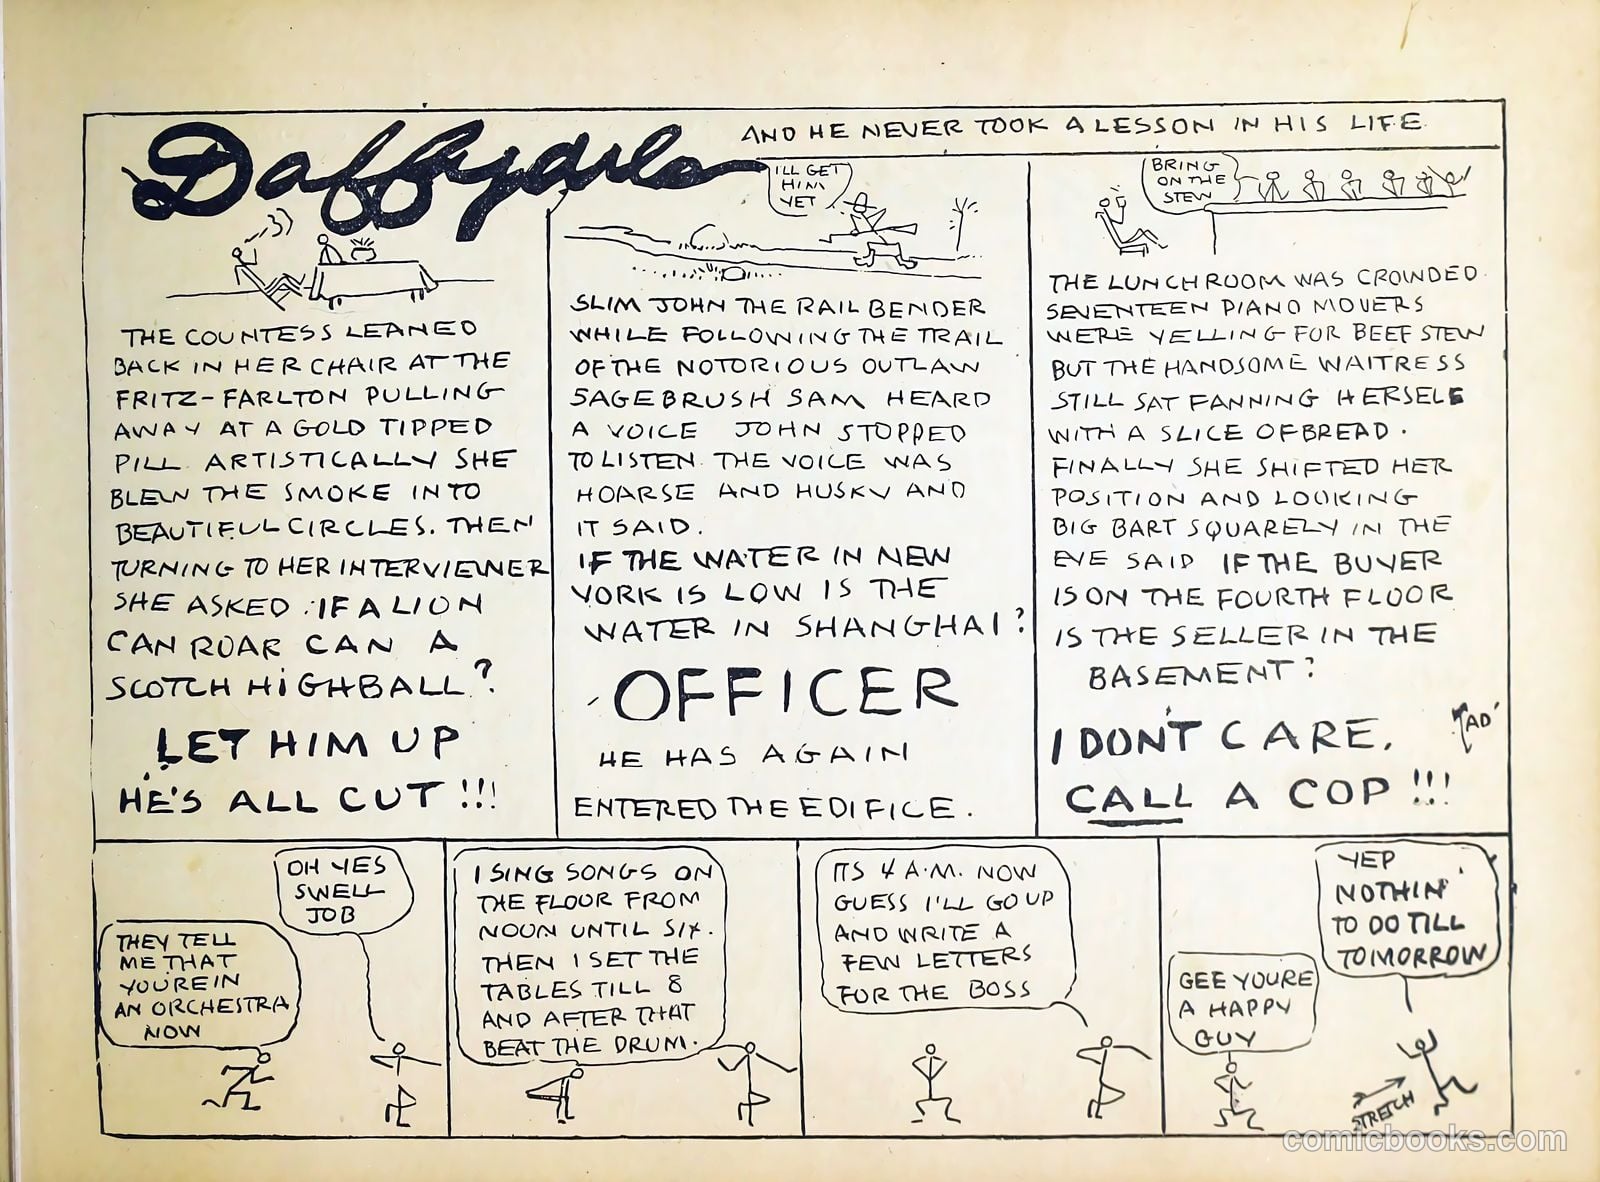 Daffydils
AND HE NEVER TOOK A LESSON IN HIS LIFE
THE COUNTESS LEANED
BACK IN HER CHAIR AT THE
FRITZ-FARLTON PULLING
AWAY AT A GOLD TIPPED
PILL ARTISTICALLY SHE
BLEW THE SMOKE INTO
BEAUTIFUL CIRCLES. THEN
TURNING TO HER INTERVIEWER
SHE ASKED. IF A LION
CAN ROAR CAN A
SCOTCH HIGHBALL?
LET HIM UP
HE'S ALL CUT!!!
I'LL GET
HIM
YET
SLIM JOHN THE RAIL BENDER
WHILE FOLLOWING THE TRAIL
OF THE NOTORIOUS OUTLAW
SAGEBRUSH SAM HEARD
A VOICE JOHN STOPPED
TO LISTEN. THE VOICE WAS
HOARSE AND HUSKY AND
IT SAID.
IF THE WATER IN NEW
YORK IS LOW IS THE
WATER IN SHANGHAI?
OFFICER
HE HAS AGAIN
ENTERED THE EDIFICE.
BRING
ON THE
STEW
THE LUNCHROOM WAS CROWDED.
SEVENTEEN PIANO MOVERS
WERE YELLING FOR BEEF STEW
BUT THE HANDSOME WAITRESS
STILL SAT FANNING HERSELF
WITH A SLICE OF BREAD.
FINALLY SHE SHIFTED HER
POSITION AND LOOKING
BIG BART SQUARELY IN THE
EYE SAID IF THE BUYER
IS ON THE FOURTH FLOOR
IS THE SELLER IN THE
BASEMENT?
I DON'T CARE.
CALL A COP!!!
TAD
THEY TELL
ME THAT
YOU'RE IN
AN ORCHESTRA
NOW
OH YES
SWELL
JOB
I SING SONGS ON
THE FLOOR FROM
NOON UNTIL SIX.
THEN I SET THE
TABLES TILL 8
AND AFTER THAT
BEAT THE DRUM.
ITS 4 A.M. NOW
GUESS I'LL GO UP
AND WRITE A
FEW LETTERS
FOR THE BOSS
GEE YOURE
A HAPPY
GUY
YEP
NOTHIN'
TO DO TILL
TOMORROW
STRETCH
comicbooks.com